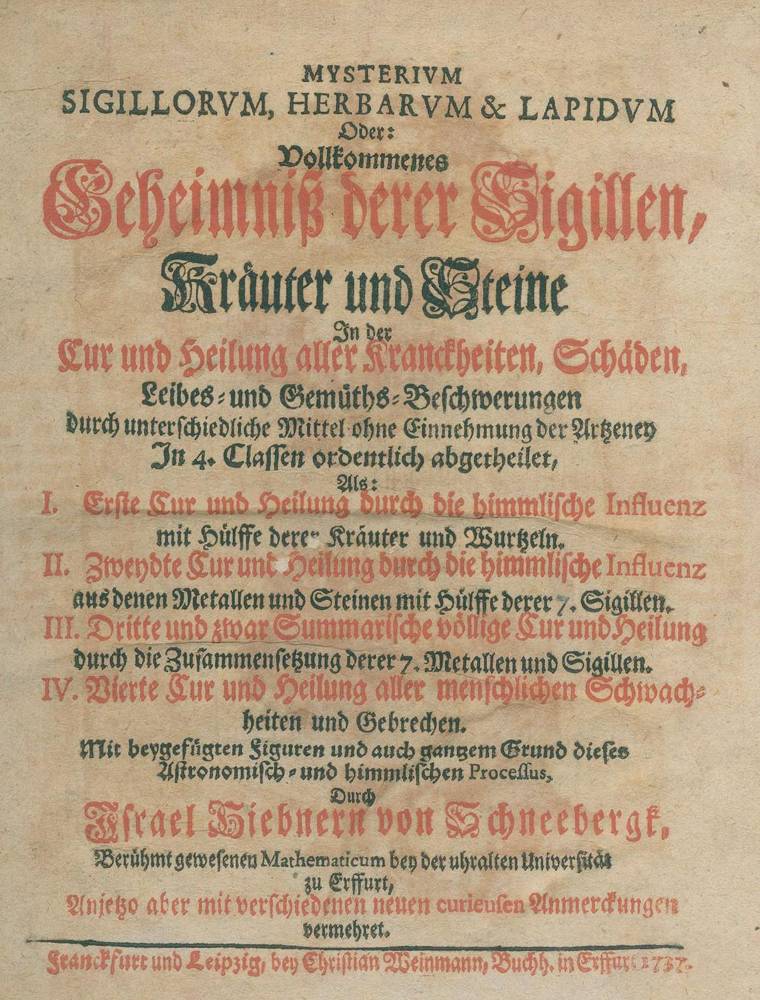 MYSTERIVM
SIGILLORVM, HERBARVM & LAPIDVM
Oder:
Vollkommenes
Geheimniß derer Sigillen,
Kräuter und Steine
In der
Cur und Heilung aller Kranckheiten, Schäden,
Leibes- und Gemüths-Beschwerungen
durch unterschiedliche Mittel ohne Einnehmung der Artzeney
In 4. Classen ordentlich abgetheilet,
Als:
I. Erste Cur und Heilung durch die himmlische Influenz
mit Hülffe derer Kräuter und Wurtzeln.
II. Zweydte Cur und Heilung durch die himmlische Influenz
aus denen Metallen und Steinen mit Hülffe derer 7. Sigillen.
III. Dritte und zwar Summarische völlige Cur und Heilung
durch die Zusammensetzung derer 7. Metallen und Sigillen.
IV. Vierte Cur und Heilung aller menschlichen Schwach-
heiten und Gebrechen.
Mit beygefügten Figuren und auch gantzem Grund dieses
Astronomisch- und himmlischen Processus,
Durch
Israel Hiebnern von Schneebergk,
Berühmt gewesenen Mathematicum bey der uhralten Universität
zu Erffurt,
Anjetzo aber mit verschiedenen neuen curieusen Anmerckungen
vermehret.
Franckfurt und Leipzig, bey Christian Weinmann, Buchh. in Erffurt 1737.